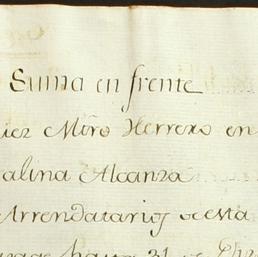 Suma en frente
uier Mtro Herrero en
alina Alcanza
Arrendatarios de esta
hasta 31 de